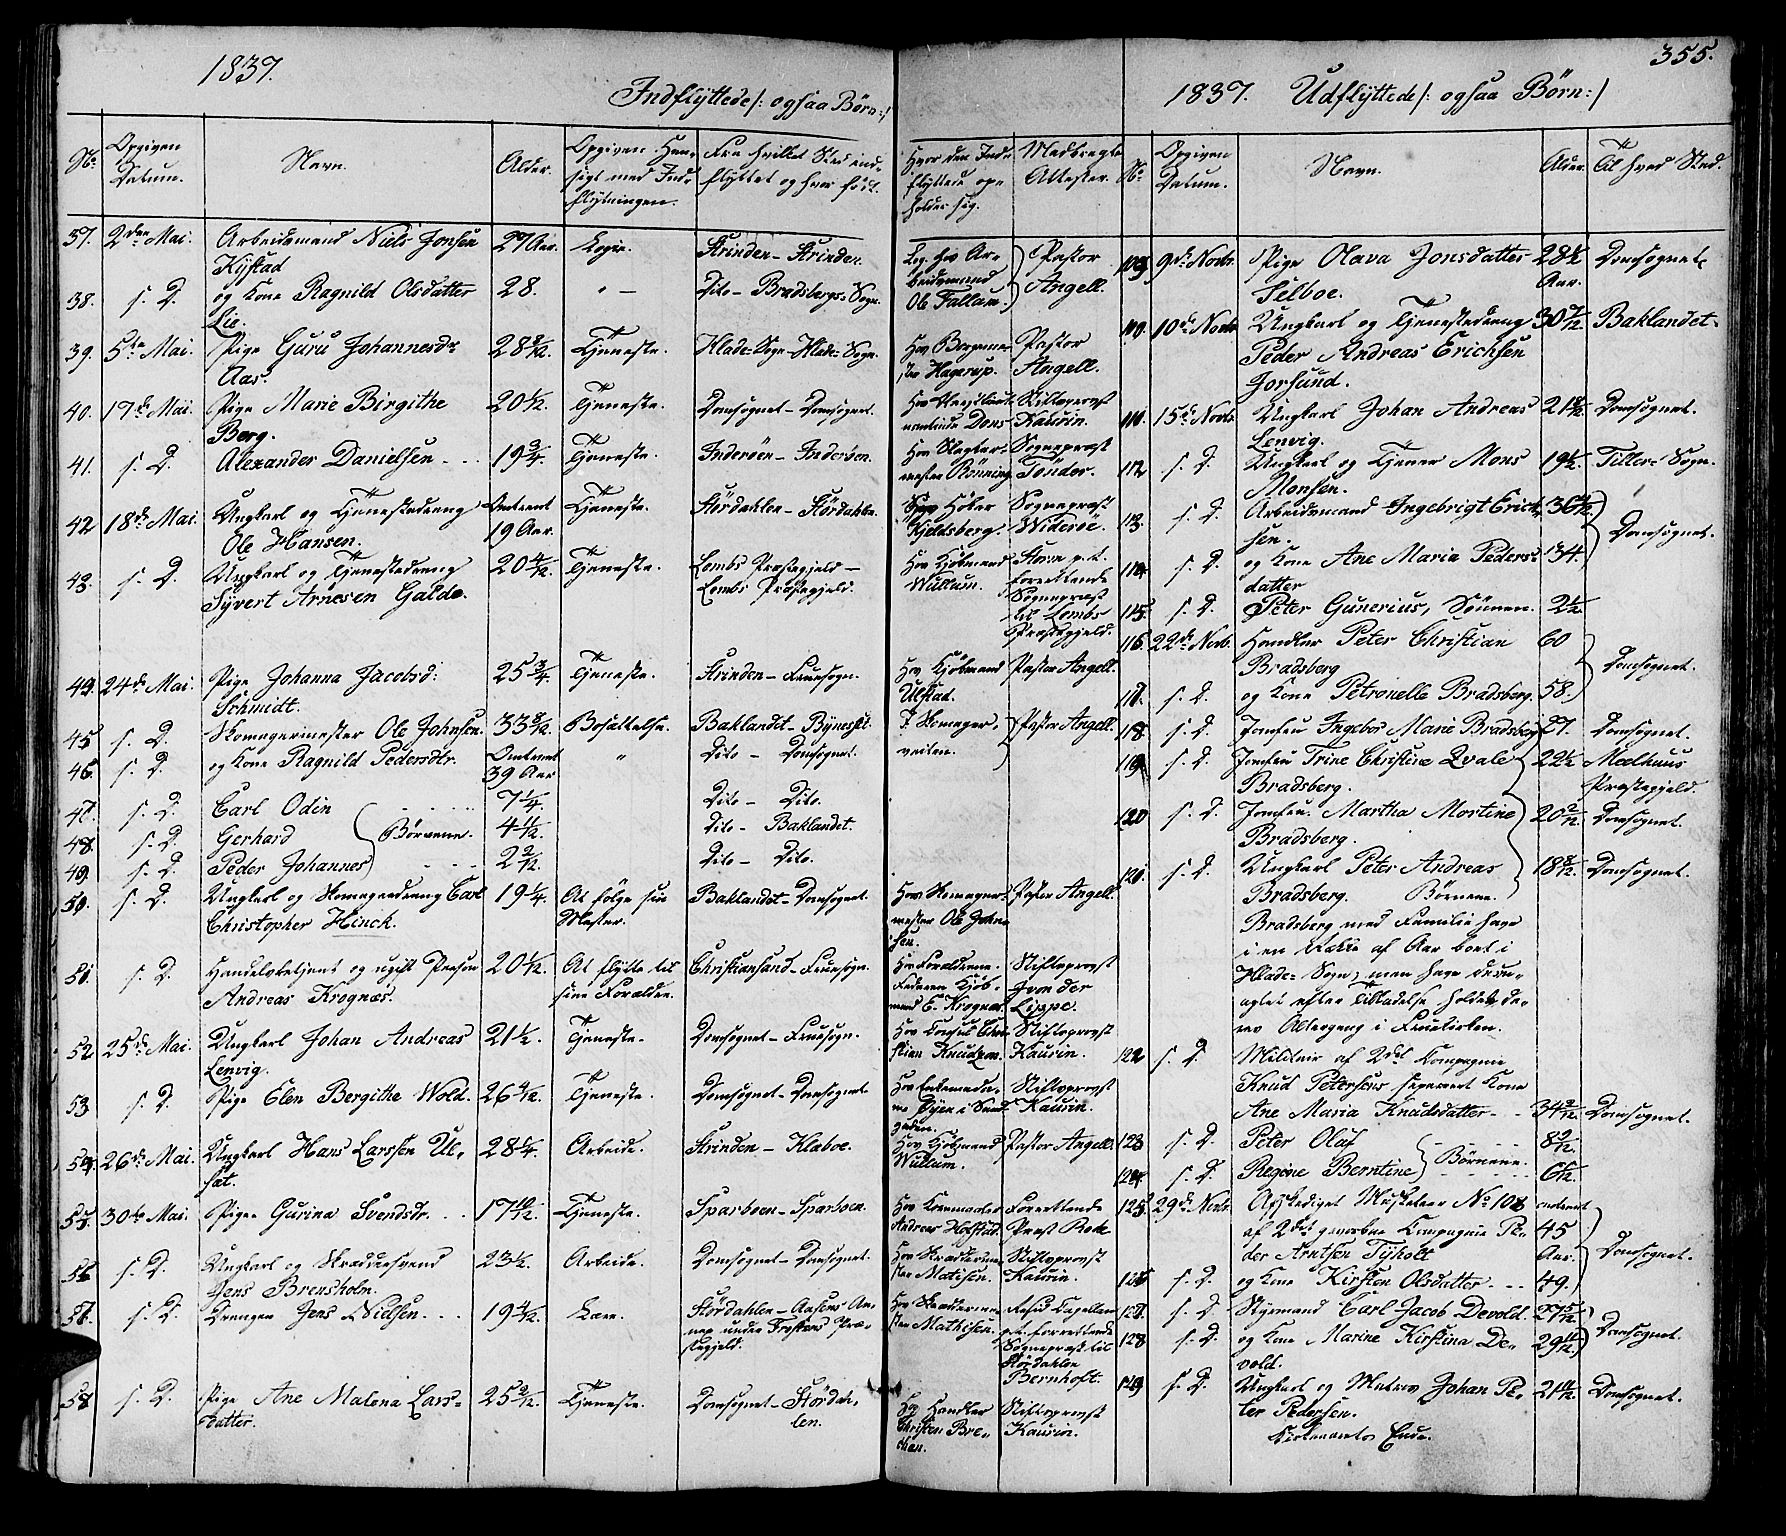 1837.
Indflyttede /: ogsaa Børn :/
No
Opgiven Datum.
Navn.
Alder.
Opgiven Hensigt med Indflytningen.
Fra hvilket Sted indflyttet og hvor født.
Hvor den Indflyttede opholder sig.
Medbragte Attester.
37. 2den Mai. Arbeidsmand Niels Jonsen Kystad 27 Aar. Logie. Strinden – Strinden. Log. hos Arbeidsmand Ole Fallan. Pastor Angell.
38. s. D. og Kone Ragnild Olsdatter Lie. 28. " – Dito – Bradsbergs Sogn.
39. 5te Mai. Pige Guru Johannesdr Aas. 28 8/12. Tjeneste. Hlade Sogn – Hlade Sogn. Hos Borgermester Hagerup. Pastor Angell.
40. 17de Mai. Pige Marie Birgithe Berg. 20 1/2. Tjeneste. Domsognet – Domsognet. Stiftsprovst Kaurin.
41. s. D. Alexander Danielsen . . . 19 3/4. Tjeneste. Inderøen – Inderøen. Hos Slagtermester Rönning. Sogneprest Tönder.
42 18de Mai. Ungkarl og Tjenestedreng Ole Hansen. Omtrent 19 Aar. Tjeneste. Stördahlen – Stördahlen. Kjeldsberg. Sogneprest Wideröe.
43. s. D. Ungkarl og Tjenestedreng Syvert Arnesen Galde. 20 4/12. Tjeneste. Lombs Præstegjeld – Lombs Præstegjeld. Hos Kjöbmand Wullum. p. t. forrettende Sogneprest til Lombs Præstegjeld.
44. 24de Mai. Pige Johanna Jacobsd: Schmidt. 25 3/4. Tjeneste. Strinden – Fruesogn. Hos Kjöbmand Ulstad. Pastor Angell.
45 s. D. Skomagermester Ole Johnsen. 33 8/12. Bosættelse. Baklandet – Bynesset. I Skomagerveiten. Pastor Angell.
46. s. D. og Kone Ragnild Pedersdtr. Omtrent 39 Aar " Dito – Domsognet.
47. s. D. Carl Odin 7 1/4. Dito – Dito.
48. s. D. Gerhard Børnene. 4 11/12. Dito – Baklandet.
49. s. D. Peder Johannes 2 2/12. Dito – Dito.
50. s. D. Ungkarl og Skomagerdreng Carl Christopher Hinck. 19 1/4. At fölge sin Mester. Baklandet – Domsognet. Hos Skomagermester Ole Johnsen. Pastor Angell.
51. s. D. Handelsbetjent og ugift Person Andreas Krognæs. 20 1/2. At flytte til sine Forældre. Christiansand – Fruesogn. Hos Forældrene. Faderen Kjöbmand E. Krognæs. Stiftsprovst von der Lippe.
52 25de Mai. Ungkarl Johan Andreas Lenvig. 21 1/2. Tjeneste. Domsognet – Fruesogn. Hos Consul Christian Knudtzon. Stiftsprovst Kaurin.
53 s. D. Pige Elen Bergithe Wold. 26 4/12. Tjeneste. Domsognet – Domsognet. Stiftsprovst Kaurin.
54. 26de Mai. Ungkarl Hans Larssen Ulsat. 28 1/4. Arbeide. Strinden – Klæboe. Hos Kjöbmand Wullum. Pastor Angell.
55. 30te Mai. Pige Gurina Svendsdr. . . 17 10/12. Tjeneste. Sparboen – Sparboen. Hos Kornmaaler Andreas Hofstad. Forrettende Præst
56. s. D. Ungkarl og Skræddersvend Jens Brensholm. 23 1/2. Arbeide. Domsognet – Domsognet. Hos Skræddermester Matisen. Stiftsprovst Kaurin.
57. s. D. Drengen Jens Nielsen . . . 19 4/12. Lære. Stördahlen – Aasens Annex under Frostens Præstegjeld. Hos Skræddermester Mathisen. Resid. Capellan p. t. forrettende Sogneprest til Stördahlen Bernhoft.
58 s. D. Pige Ane Malena Larsdatter. 25 2/12. Tjeneste. Domsognet – Stördalen. Hos Handler Christen Brechan. Stiftsprovst Kaurin.
355.
1837. Udflyttede /: ogsaa Børn :/
No
Opgiven Datum.
Navn.
Alder.
Til hvad Sted.
109. 9de Novbr. Pige Olava Jonsdatter Selboe. 28 1/2 Aar. Domsognet.
110. 10de Novbr. Ungkarl og Tjenestedreng Peder Andreas Erichsen Forsund. 30 7/12. Baklandet.
111. 15de Novbr. Ungkarl Johan Andreas Lenvig. Domsognet.
112 s. D. Ungkarl og Tjener Mons Monsen. 19 1/2. Tiller Sogn.
113. s. D. Arbeidsmand Ingebrigt Erichsen. Domsognet.
114. s. D. og Kone Ane Maria Pedersdatter 34.
115. s. D. Peter Gunerius, Sönnen. 2 1/2.
116. 22de Novb. Handler Peter Christian Bradsberg 60 Domsognet.
117. s. D. og Kone Petronelle Bradsberg. 58.
118. s. D. Jomfru Ingebor Marie Bradsberg 27. Domsognet.
119. s. D. Jomfru Trine Christine Qvale Bradsberg. 22 1/2 Meelhuus Præstegjeld.
120 s. D. Jomfru Martha Mortine Bradsberg. 20 2/12. Domsognet.
121. s. D. Ungkarl Peter Andreas Bradsberg. Børnene. 18 8/12. Domsognet.
Bradsberg med Familie have
i en Række af Aar boet i
Hlade Sogn, men have uagtet efter Tilladelse holdet deres Altergang i Fruekirken.
122 s. D. Militair af 2det Compagnie Knud Petersens separeret Kone Ane Maria Knudsdatter – . . 34 2/12. Domsognet.
123 s. D. Peter Olaf 8 2/12.
124. s. D. Regine Berntine Børnene. 6 1/12.
125. 29de Novbr. Afskediget Musketeer No 108 af 2det gevorbne Compagnie Peder Arntsen Tyholt omtrent 45 Aar. Domsognet.
126. s. D. og Kone Kirsten Olsdatter . . . 49.
127. s. D. Styrmand Carl Jacob Devold. 27 5/12. Domsognet.
128. s. D. og Kone Marine Kirstina Devold. 29 11/12.
129 s. D. Ungkarl og Matros Johan Peter Pedersen. 21 11/12. Domsognet.
Kirkeaarets Ende.